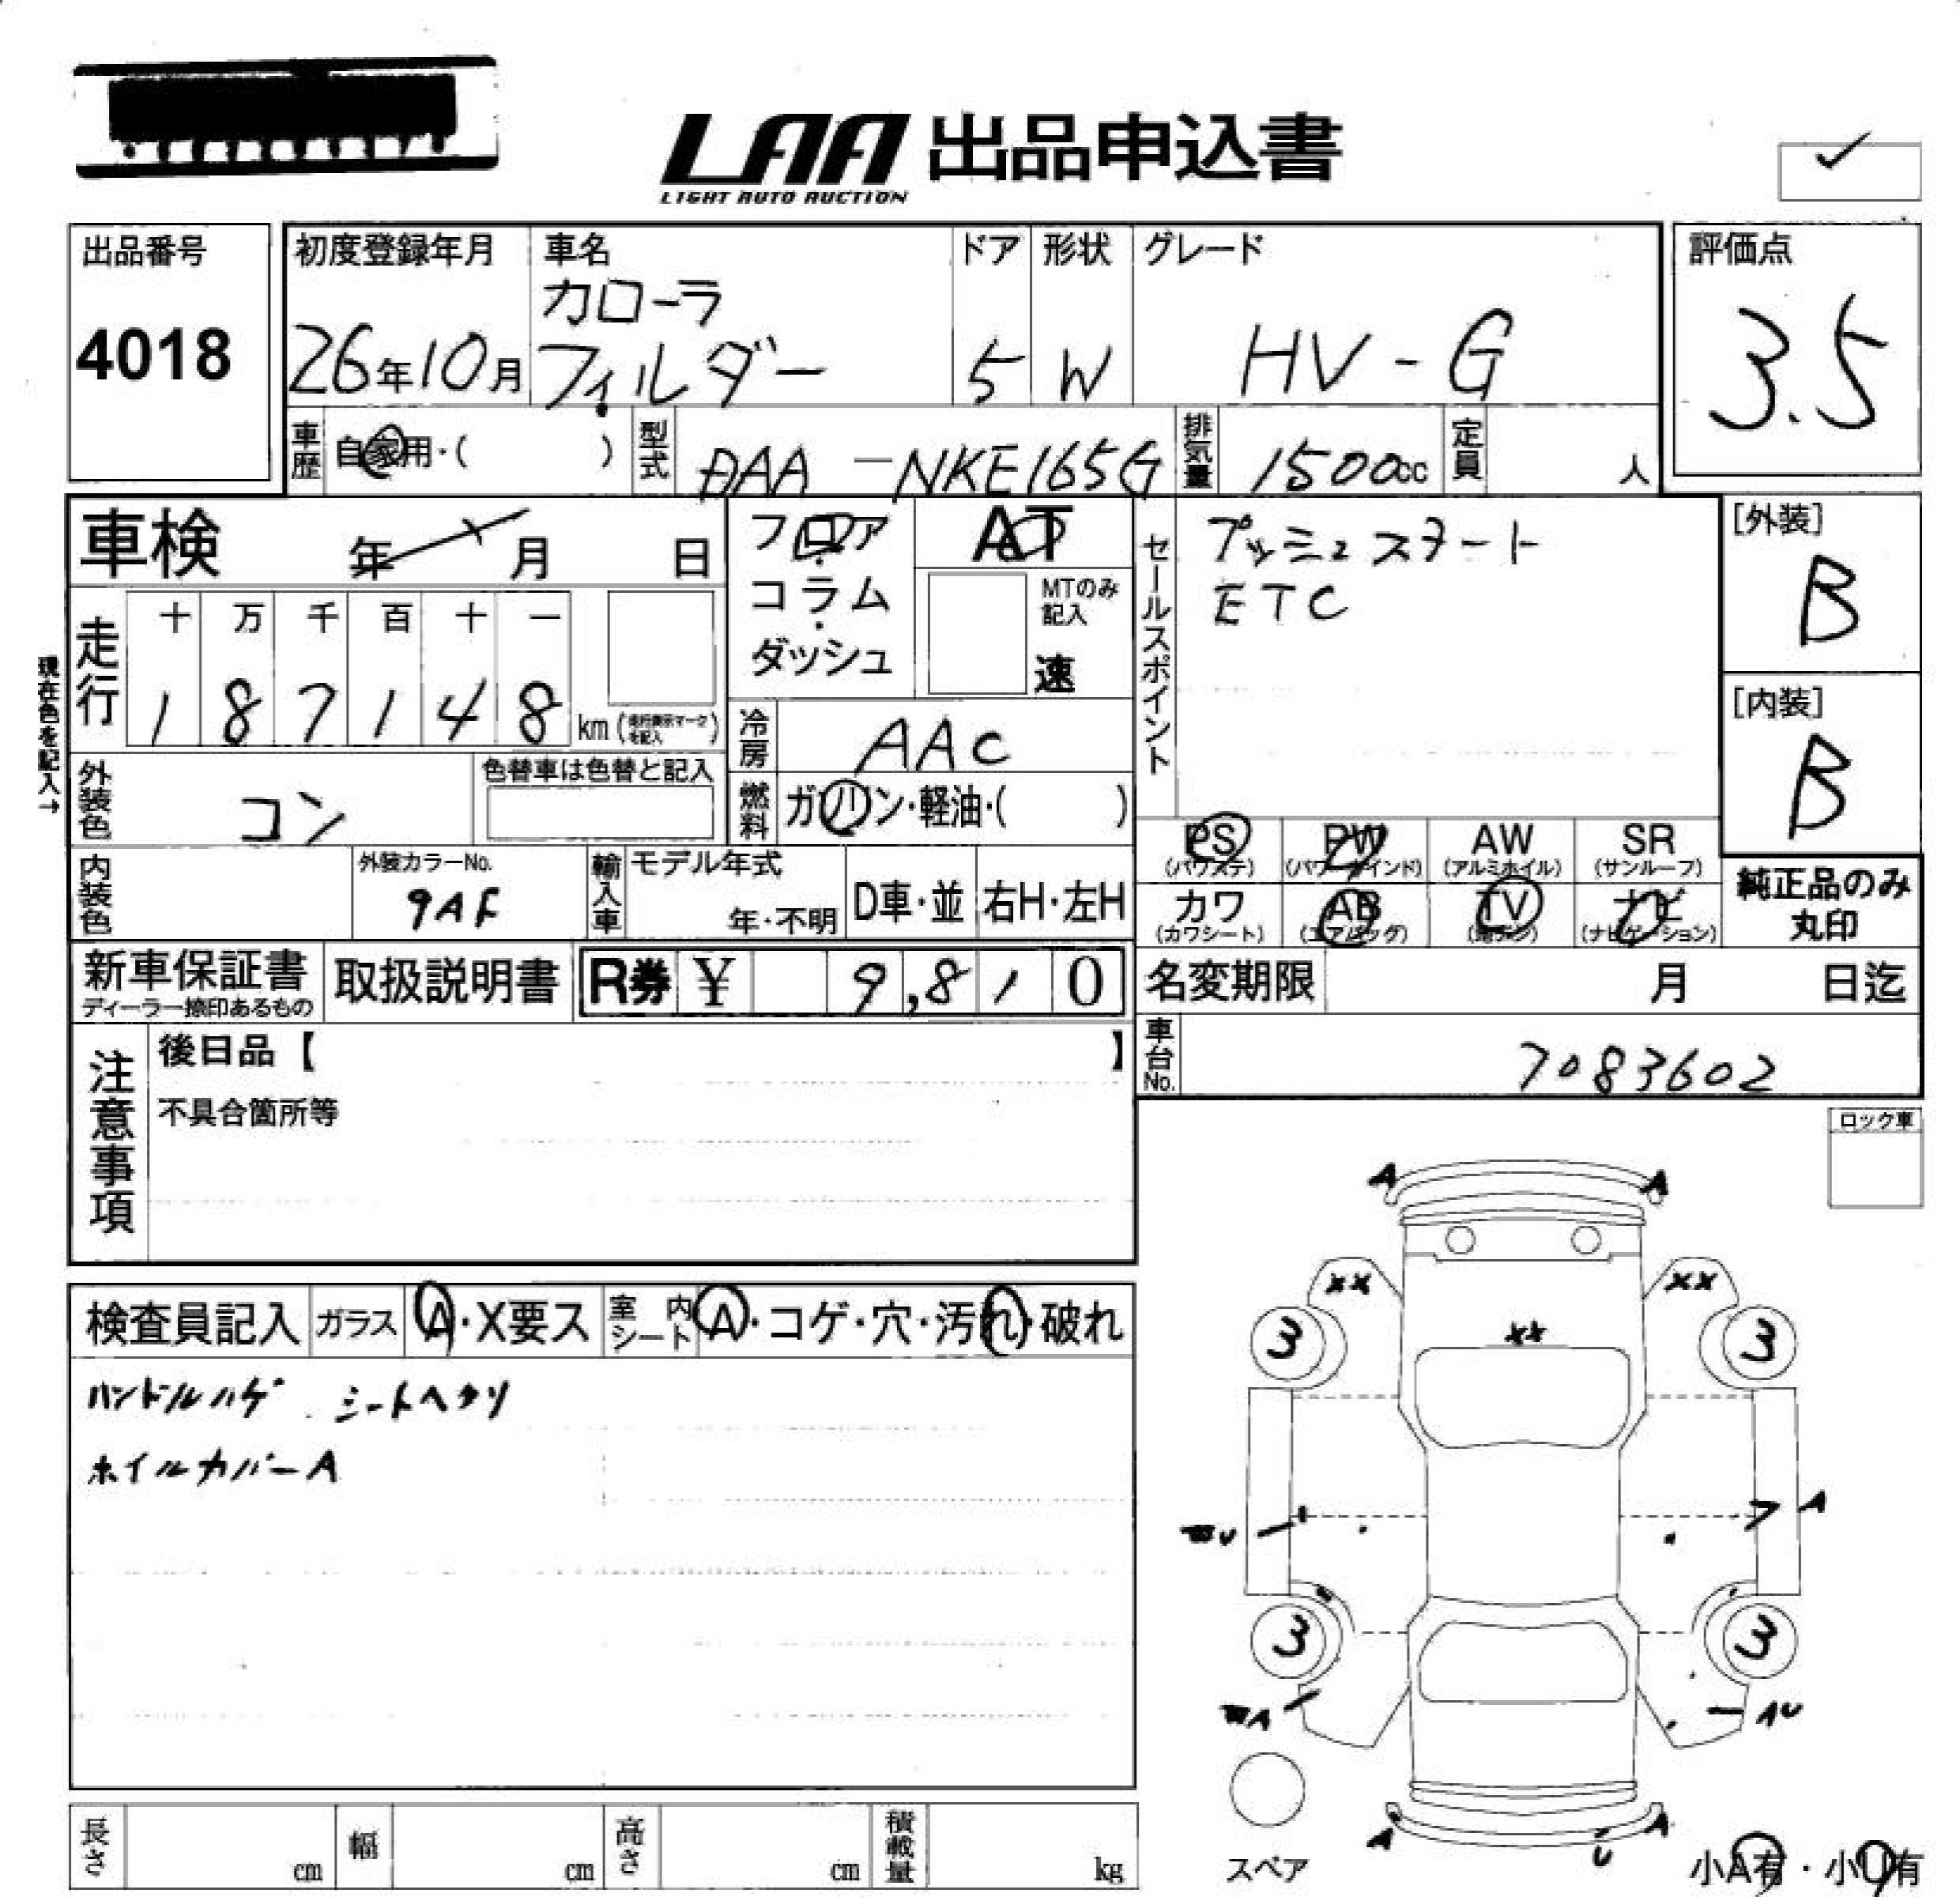 LAA 出品申込書
LIGHT AUTO AUCTION
出品番号
4018
初度登録年月
26年10月
車名
カローラ
フィルダー
ドア
5
形状
W
グレード
HV-G
評価点
3.5
車歴 自家用・( )
型式 DAA-NKE165G
排気量 1500cc
定員 人
車検 年 月 日
フロア・コラム・ダッシュ
AT
MTのみ記入
速
セールスポイント
プッシュスタート
ETC
[外装]
B
[内装]
B
現在色を記入→
走行
十 万 千 百 十 一
1 8 7 1 4 8 km (走行表示マークを記入)
冷房 AAC
外装色 コン
色替車は色替と記入
燃料 ガソリン・軽油・( )
PS (パワステ)
PW (パワーウインド)
AW (アルミホイル)
SR (サンルーフ)
カワ (カワシート)
AB (エアバッグ)
TV (地デジ)
ナビ (ナビゲーション)
純正品のみ丸印
内装色
外装カラーNo.
9AF
輸入車
モデル年式
年・不明
D車・並
右H・左H
新車保証書
ディーラー捺印あるもの
取扱説明書
R券 ¥ 9,810
名変期限 月 日迄
車台No. 7083602
注意事項
後日品【 】
不具合箇所等
ロック車
検査員記入
ガラス A・X要ス
室内シート A・コゲ・穴・汚れ・破れ
ハンドルハゲ シートヘタリ
ホイルカバーA
A A
XX XX
XX
3 3
U A
3 3
A U
A U A
スペア
小A有・小U有
長さ cm
幅 cm
高さ cm
積載量 kg